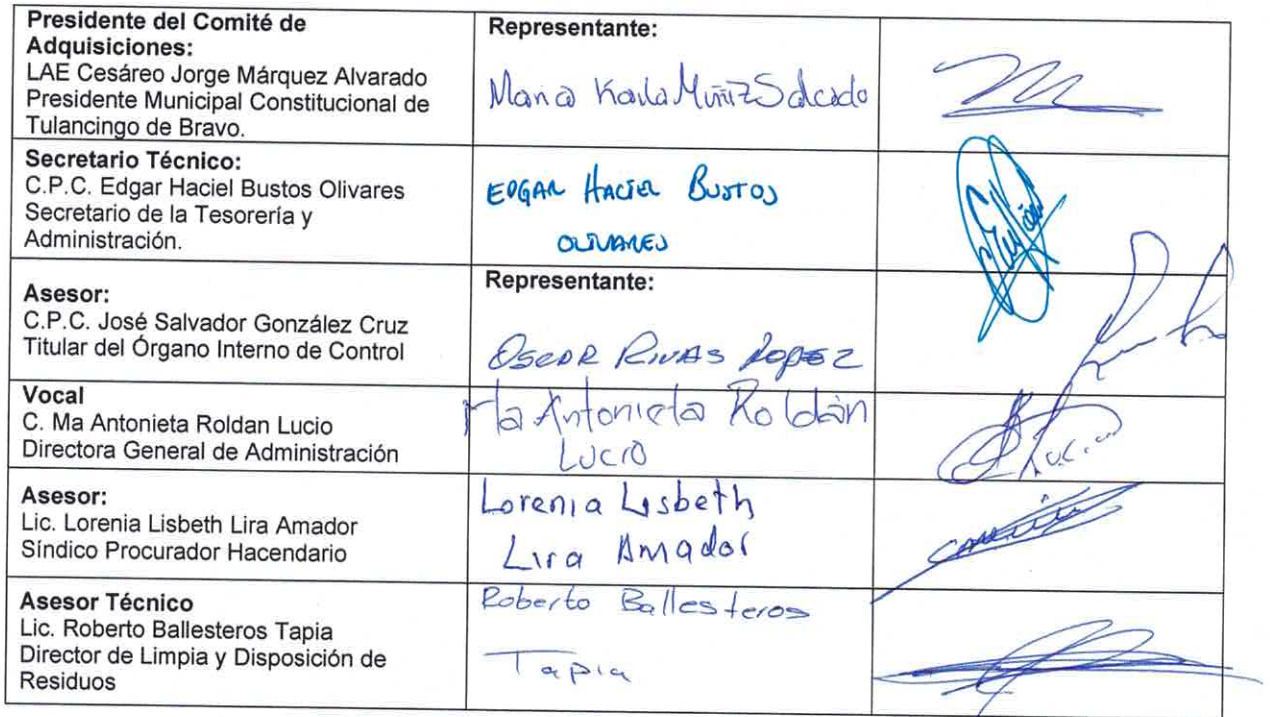 Presidente del Comité de
Adquisiciones:
LAE Cesáreo Jorge Márquez Alvarado
Presidente Municipal Constitucional de
Tulancingo de Bravo.
Representante:
Maria Karla Muñiz Salcedo
Secretario Técnico:
C.P.C. Edgar Haciel Bustos Olivares
Secretario de la Tesorería y
Administración.
EDGAR HACIEL BUSTOS
OLIVARES
Asesor:
C.P.C. José Salvador González Cruz
Titular del Órgano Interno de Control
Representante:
OSCAR RIVAS LOPEZ
Vocal
C. Ma Antonieta Roldan Lucio
Directora General de Administración
Ma Antonieta Roldán
Lucio
Asesor:
Lic. Lorenia Lisbeth Lira Amador
Síndico Procurador Hacendario
Lorenia Lisbeth
Lira Amador
Asesor Técnico
Lic. Roberto Ballesteros Tapia
Director de Limpia y Disposición de
Residuos
Roberto Ballesteros
Tapia